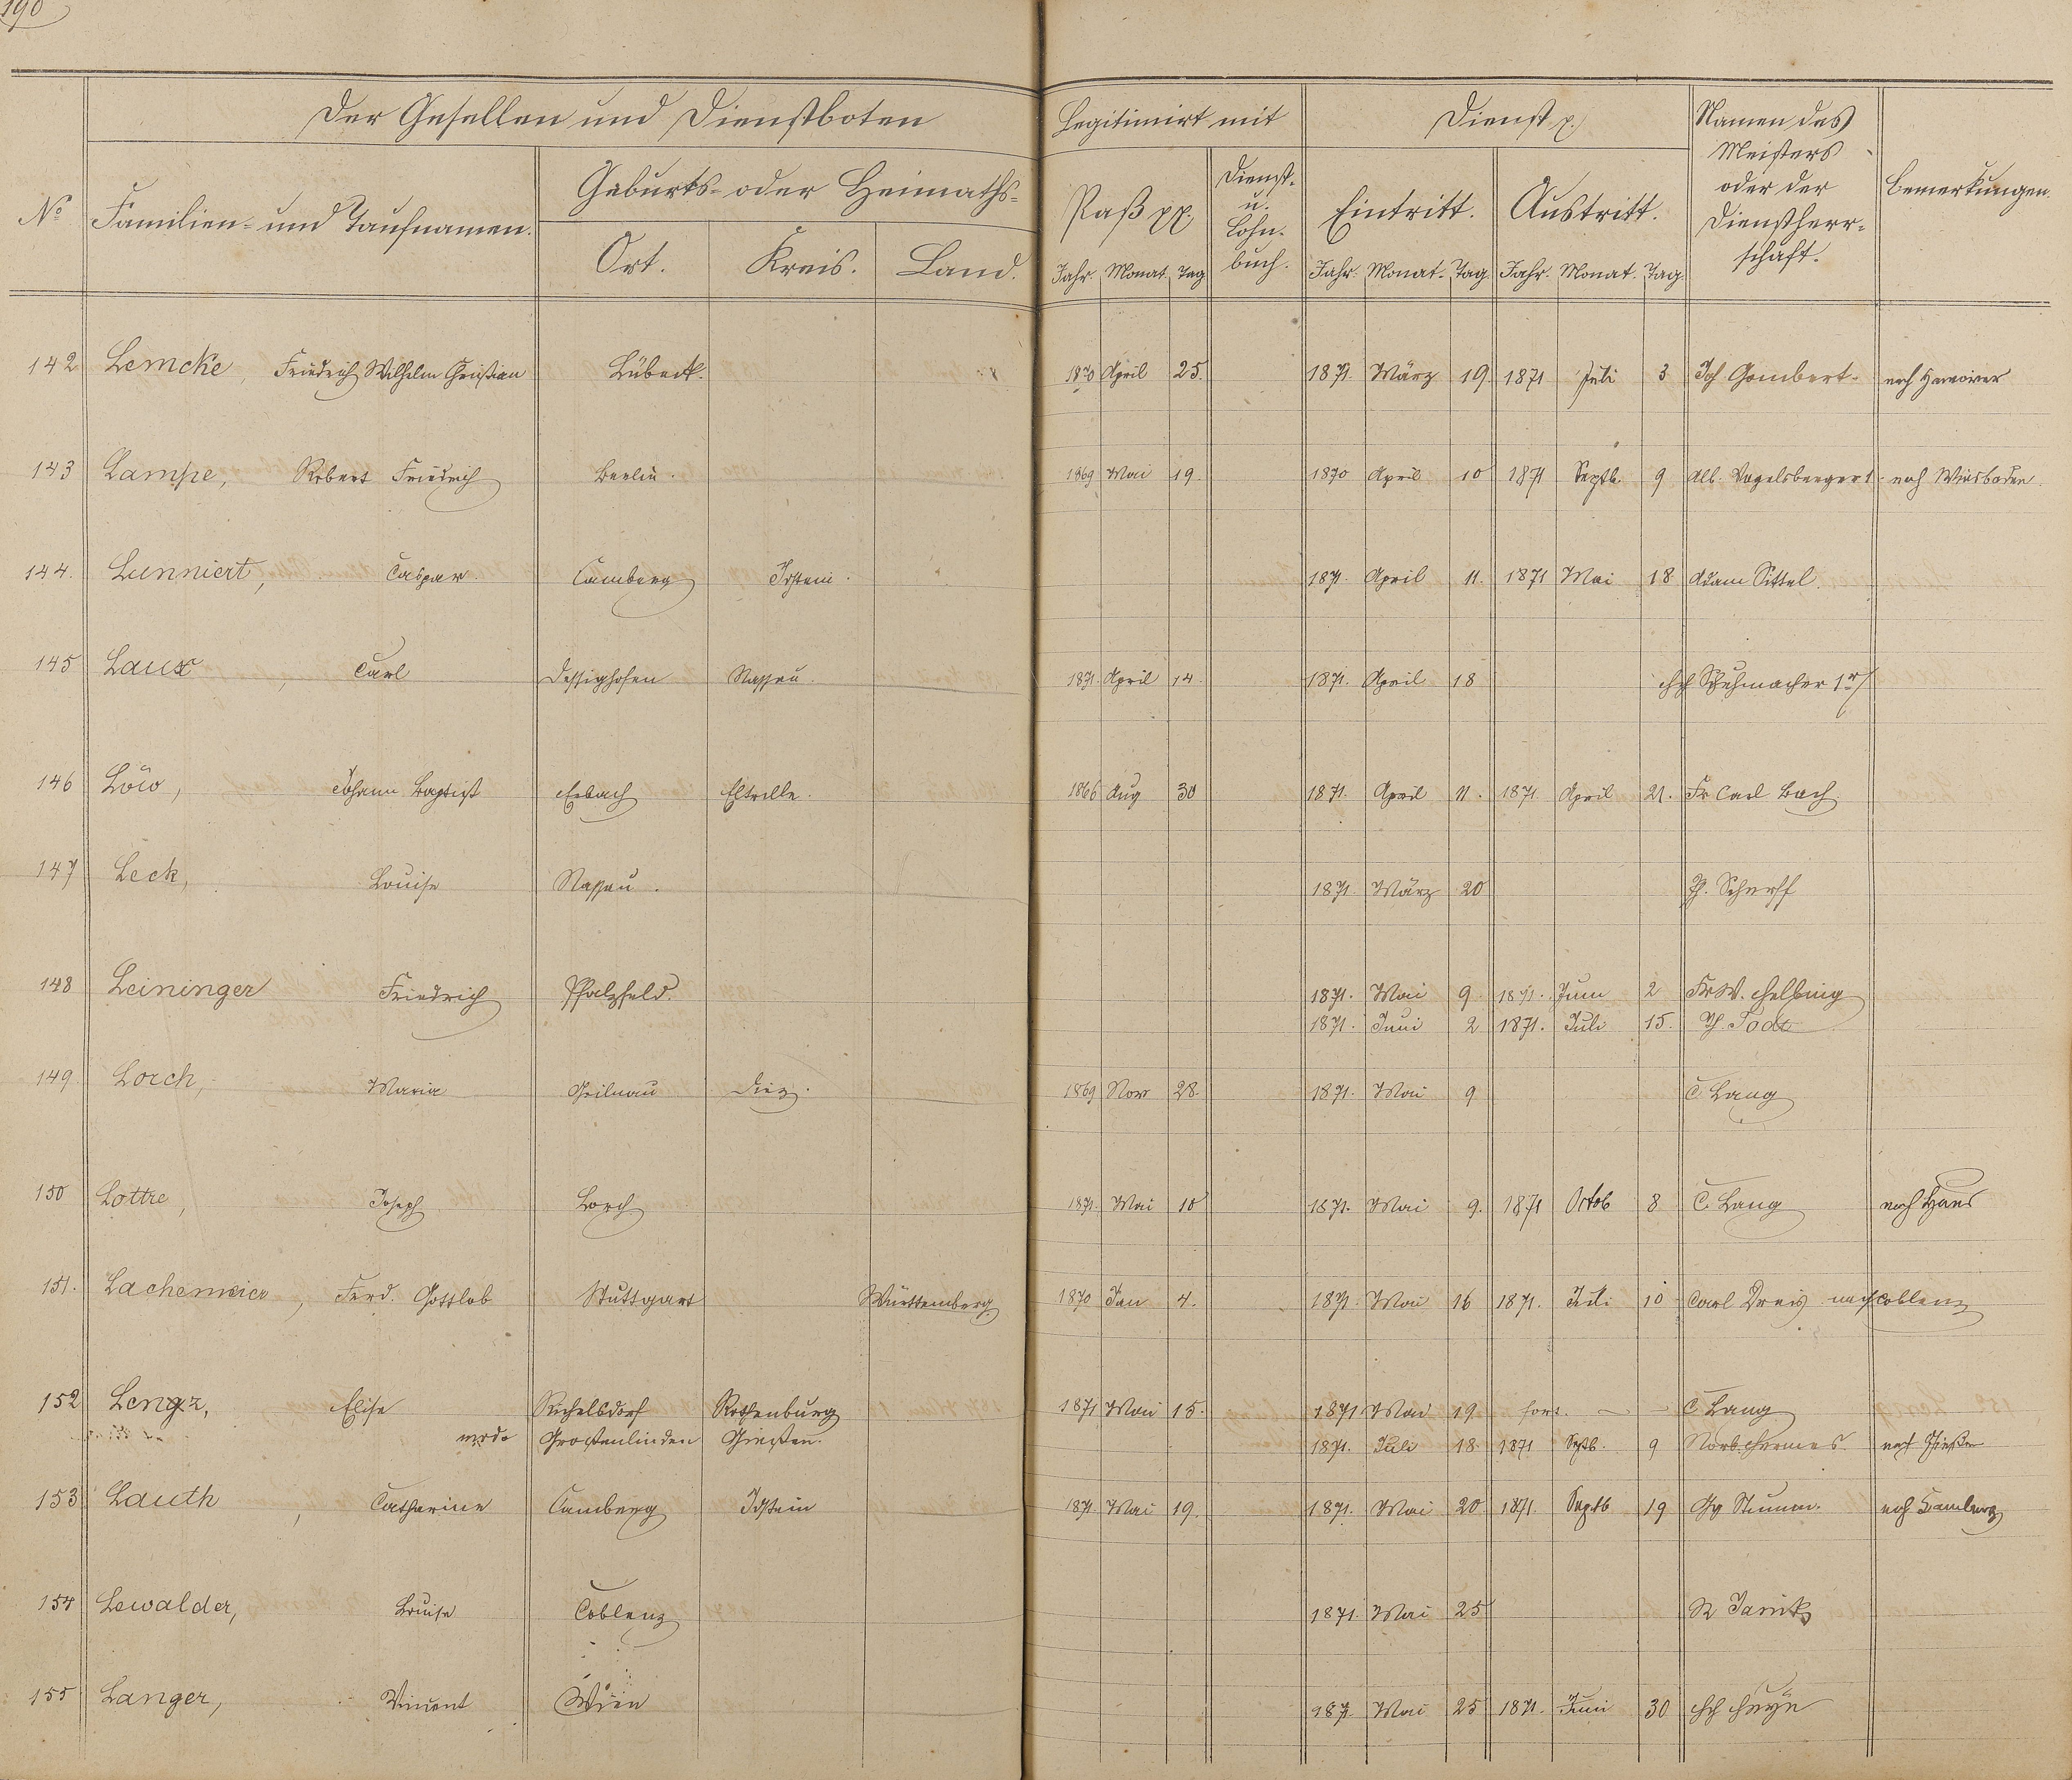 190
Der Gesellen und Dienstboten Legitimirt mit Dienst p. Namen des
Meisters
oder der
Dienstherr-
schaft. Bemerkungen.
No Familien- und Taufnamen. Geburts- oder Heimaths- Paß pp. Dienst-
u.
Lohn-
buch. Eintritt. Austritt.
Ort. Kreis. Land. Jahr. Monat. Tag Jahr. Monat. Tag. Jahr. Monat. Tag.
142 Lemcke, Friedrich Wilhelm Christian Lübeck. 1870 April 25. 1871. März 19. 1871 Juli 3 Joh Gombert nach Hannover
143 Lampe, Robert Friedrich Berlin. 1869 Mai 19. 1870 April 10 1871 Septb. 9 Alb. Vogelsberger 1. nach Wiesbaden
144. Lunniert, Caspar. Camberg Idstein. 1871. April 11. 1871 Mai 18 Adam Sittel.
145 Laux, Carl Dessighofen Nassau. 1871. April 14. 1871. April 18 Schuhmacher 1r
146 Löw, Johann Baptist Erbach Eltville. 1866 Aug 30 1871. April 11. 1871. April 21. Fr Carl Bach
147 Leck, Louise Nassau. 1871. März 20 Scherff
148 Leininger Friedrich Pfalzfeld. 1871. Mai 9. 1871. Juni 2 Fr W. Helbing
1871. Juni 2 1871. Juli 15. Todt
149 Lorch, Maria Geilnau Diez. 1869 Nov 28. 1871. Mai 9 C. Lang
150 Lottre, Joseph Lorch 1871. Mai 10 1871. Mai 9. 1871 Octob 8 C. Lang nach Haus
151. Lachemeier, Ferd. Gottlob Stuttgart Württemberg 1870 Jan 4. 1871. Mai 16 1871. Juli 10 Carl Dreis nach Coblenz
152 Lengz, Elise Süchelsdorf Rothenburg 1871 Mai 15. 1871 Mai 19 fort. C Lang
modo Großenlinden Gießen. 1871. Juli 18. 1871 Septb. 9 Norb. Hermes. nach Gießen
153 Lauth, Catharine Camberg Idstein 1871. Mai 19. 1871. Mai 20 1871. Septb 19 Gg Stumm. nach Camberg
154 Lewalder, Louise Coblenz 1871. Mai 25 Janik
155 Langer, Vincent Wien 1871. Mai 25 1871. Juni 30